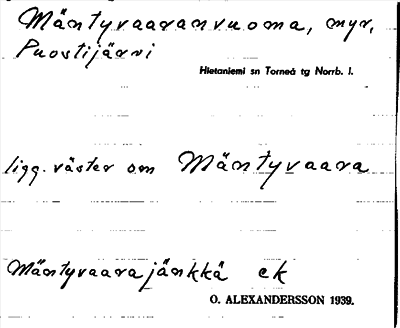 Mäntyvaaranvuoma, myr,
Puostijärvi
Hietaniemi sn Torneå tg Norrb. l.
ligg. väster om Mäntyvaara
Mäntyvaarajänkkä ek
O. ALEXANDERSSON 1939.